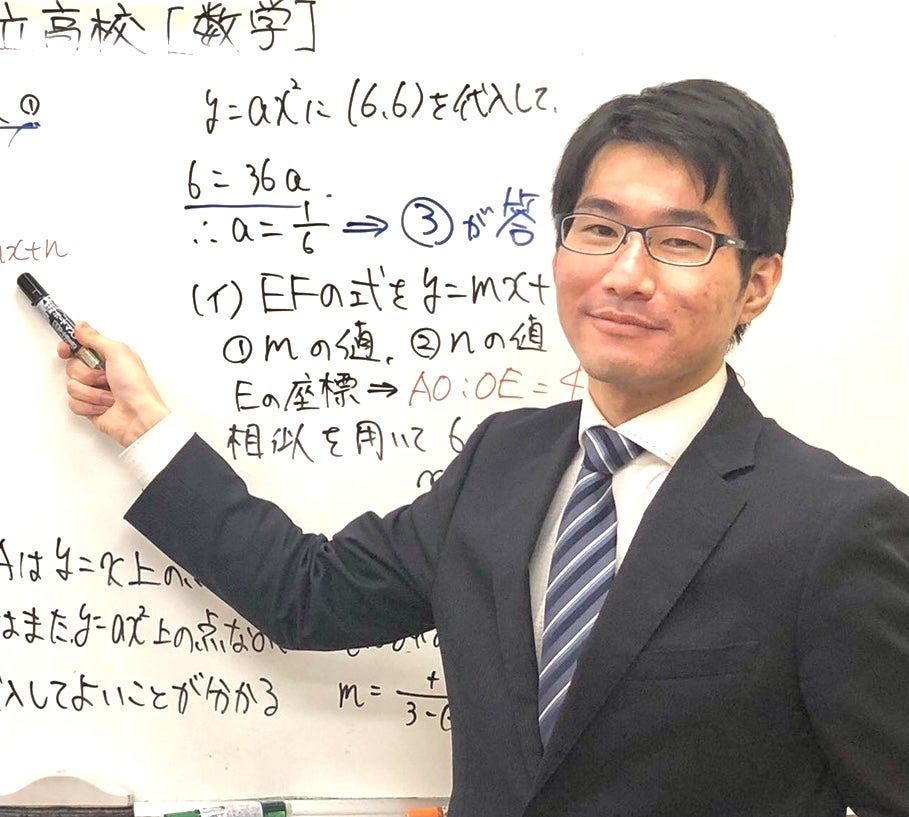 立高校［数学］
①
y=ax²に(6,6)を代入して、
6=36a
∴a=1/6 ⇒ ③が答
x+n
(イ) EFの式をy=mx+
①mの値、②nの値
Eの座標⇒AO:OE=4
相似を用いて 6
Aはy=x上の
はまたy=ax²上の点な
入してよいことが分かる
m=
3-